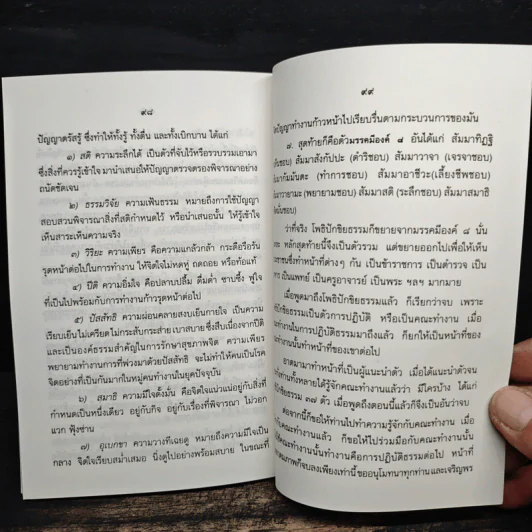 ๙๘
ปัญญาตรัสรู้ ซึ่งทำให้ทั้งรู้ ทั้งตื่น และทั้งเบิกบาน ได้แก่
๑) สติ ความระลึกได้ เป็นตัวที่จับไว้หรือรวบรวมเอามา
ซึ่งสิ่งที่ควรรู้เข้าใจ มานำเสนอให้ปัญญาตรวจตรองพิจารณาอย่าง
ถนัดชัดเจน
๒) ธรรมวิจัย ความเฟ้นธรรม หมายถึงการใช้ปัญญา
สอบสวนพิจารณาสิ่งที่สติกำหนดไว้ หรือนำเสนอนั้น ให้รู้เข้าใจ
เห็นสาระเห็นความจริง
๓) วิริยะ ความเพียร คือความแกล้วกล้า กระตือรือร้น
รุดหน้าต่อไปในการทำงาน ให้จิตใจไม่หดหู่ ถดถอย หรือท้อแท้
๔) ปีติ ความอิ่มใจ คือปลาบปลื้ม ดื่มด่ำ ซาบซึ้ง ฟูใจ
ที่เป็นไปพร้อมกับการทำงานก้าวรุดหน้าต่อไป
๕) ปัสสัทธิ ความผ่อนคลายสงบเย็นกายใจ เป็นความ
เรียบเย็นไม่เครียดไม่กระสับกระส่าย เบาสบาย ซึ่งสืบเนื่องจากปีติ
และเป็นองค์ธรรมสำคัญในการรักษาสุขภาพจิต ความเพียร
พยายามทำงานการที่พ่วงมาด้วยปัสสัทธิ จะไม่ทำให้คนเป็นโรค
จิตอย่างที่เป็นกันมากในหมู่คนทำงานในยุคปัจจุบัน
๖) สมาธิ ความมีใจตั้งมั่น คือจิตใจแน่วแน่อยู่กับสิ่งที่
กำหนดเป็นหนึ่งเดียว อยู่กับกิจ อยู่กับเรื่องที่พิจารณา ไม่วอก
แวก ฟุ้งซ่าน
๗) อุเบกขา ความวางทีเฉยดู หมายถึงความมีใจเป็น
กลาง จิตใจเรียบสม่ำเสมอ นิ่งดูไปอย่างพร้อมสบาย ในขณะที่
๙๙
ปัญญาทำงานก้าวหน้าไปเรียบรื่นตามกระบวนการของมัน
๗. สุดท้ายก็คือตัวมรรคมีองค์ ๘ อันได้แก่ สัมมาทิฏฐิ
(เห็นชอบ) สัมมาสังกัปปะ (ดำริชอบ) สัมมาวาจา (เจรจาชอบ)
สัมมากัมมันตะ (ทำการชอบ) สัมมาอาชีวะ (เลี้ยงชีพชอบ)
สัมมาวายามะ (พยายามชอบ) สัมมาสติ (ระลึกชอบ) สัมมาสมาธิ
มั่นชอบ)
ว่าที่จริง โพธิปักขิยธรรมก็ขยายจากมรรคมีองค์ ๘ นั่น
หลักสุดท้ายนี้จึงเป็นตัวรวม แต่ขยายออกไปเพื่อให้เห็น
ชนซึ่งทำหน้าที่ต่างๆ กัน เป็นข้าราชการ เป็นตำรวจ เป็น
เป็นแพทย์ เป็นครูอาจารย์ เป็นพระ ฯลฯ มากมาย
เมื่อพูดมาถึงโพธิปักขิยธรรมแล้ว ก็เรียกว่าจบ เพราะ
ธรรมเป็นตัวการปฏิบัติ หรือเป็นคณะทำงาน เมื่อ
ทำงานในการปฏิบัติธรรมมาถึงแล้ว ก็ยกให้เป็นหน้าที่ของ
งานนั้นทำหน้าที่ของเขาต่อไป
อาตมามาทำหน้าที่เป็นผู้แนะนำตัว เมื่อได้แนะนำตัวจน
ท่านทั้งหลายได้รู้จักคณะทำงานแล้วว่า มีใครบ้าง ได้แก่
ธรรม ๓๗ ตัว เมื่อพูดถึงตอนนี้แล้วก็จึงเป็นอันว่าจบ
ต่อจากนี้ก็ขอให้ท่านไปทำความรู้จักกับคณะทำงาน
คณะทำงานแล้ว ก็ขอให้ไปร่วมมือกับคณะทำงานนั้น
คณะทำงานนั้นทำงานคือการปฏิบัติธรรมต่อไป หน้าที่
ก็จบลงเพียงเท่านี้ ขออนุโมทนาทุกท่าน และเจริญพร